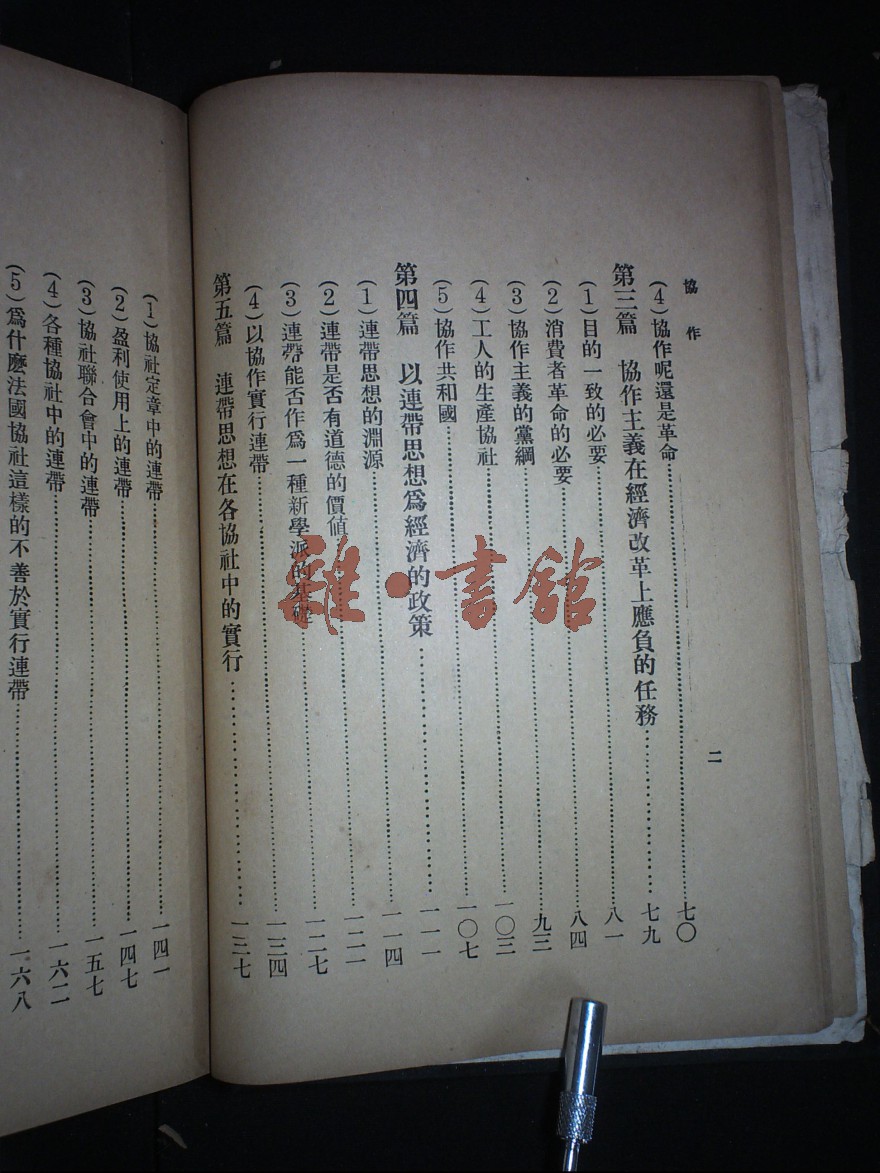 協作
二
(4)協作呢還是革命……七〇
第三篇 協作主義在經濟改革上應負的任務……七九
(1)目的一致的必要……八一
(2)消費者革命的必要……八四
(3)協作主義的黨綱……九三
(4)工人的生產協社……一〇三
(5)協作共和國……一〇七
第四篇 以連帶思想爲經濟的政策……一一一
(1)連帶思想的淵源……一一四
(2)連帶是否有道德的價值……一二一
(3)連帶能否作爲一種新學派的基礎……一二七
(4)以協作實行連帶……一三四
第五篇 連帶思想在各協社中的實行……一三七
(1)協社定章中的連帶……一四一
(2)盈利使用上的連帶……一四七
(3)協社聯合會中的連帶……一五七
(4)各種協社中的連帶……一六二
(5)爲什麼法國協社這樣的不善於實行連帶……一六八
雜·書館